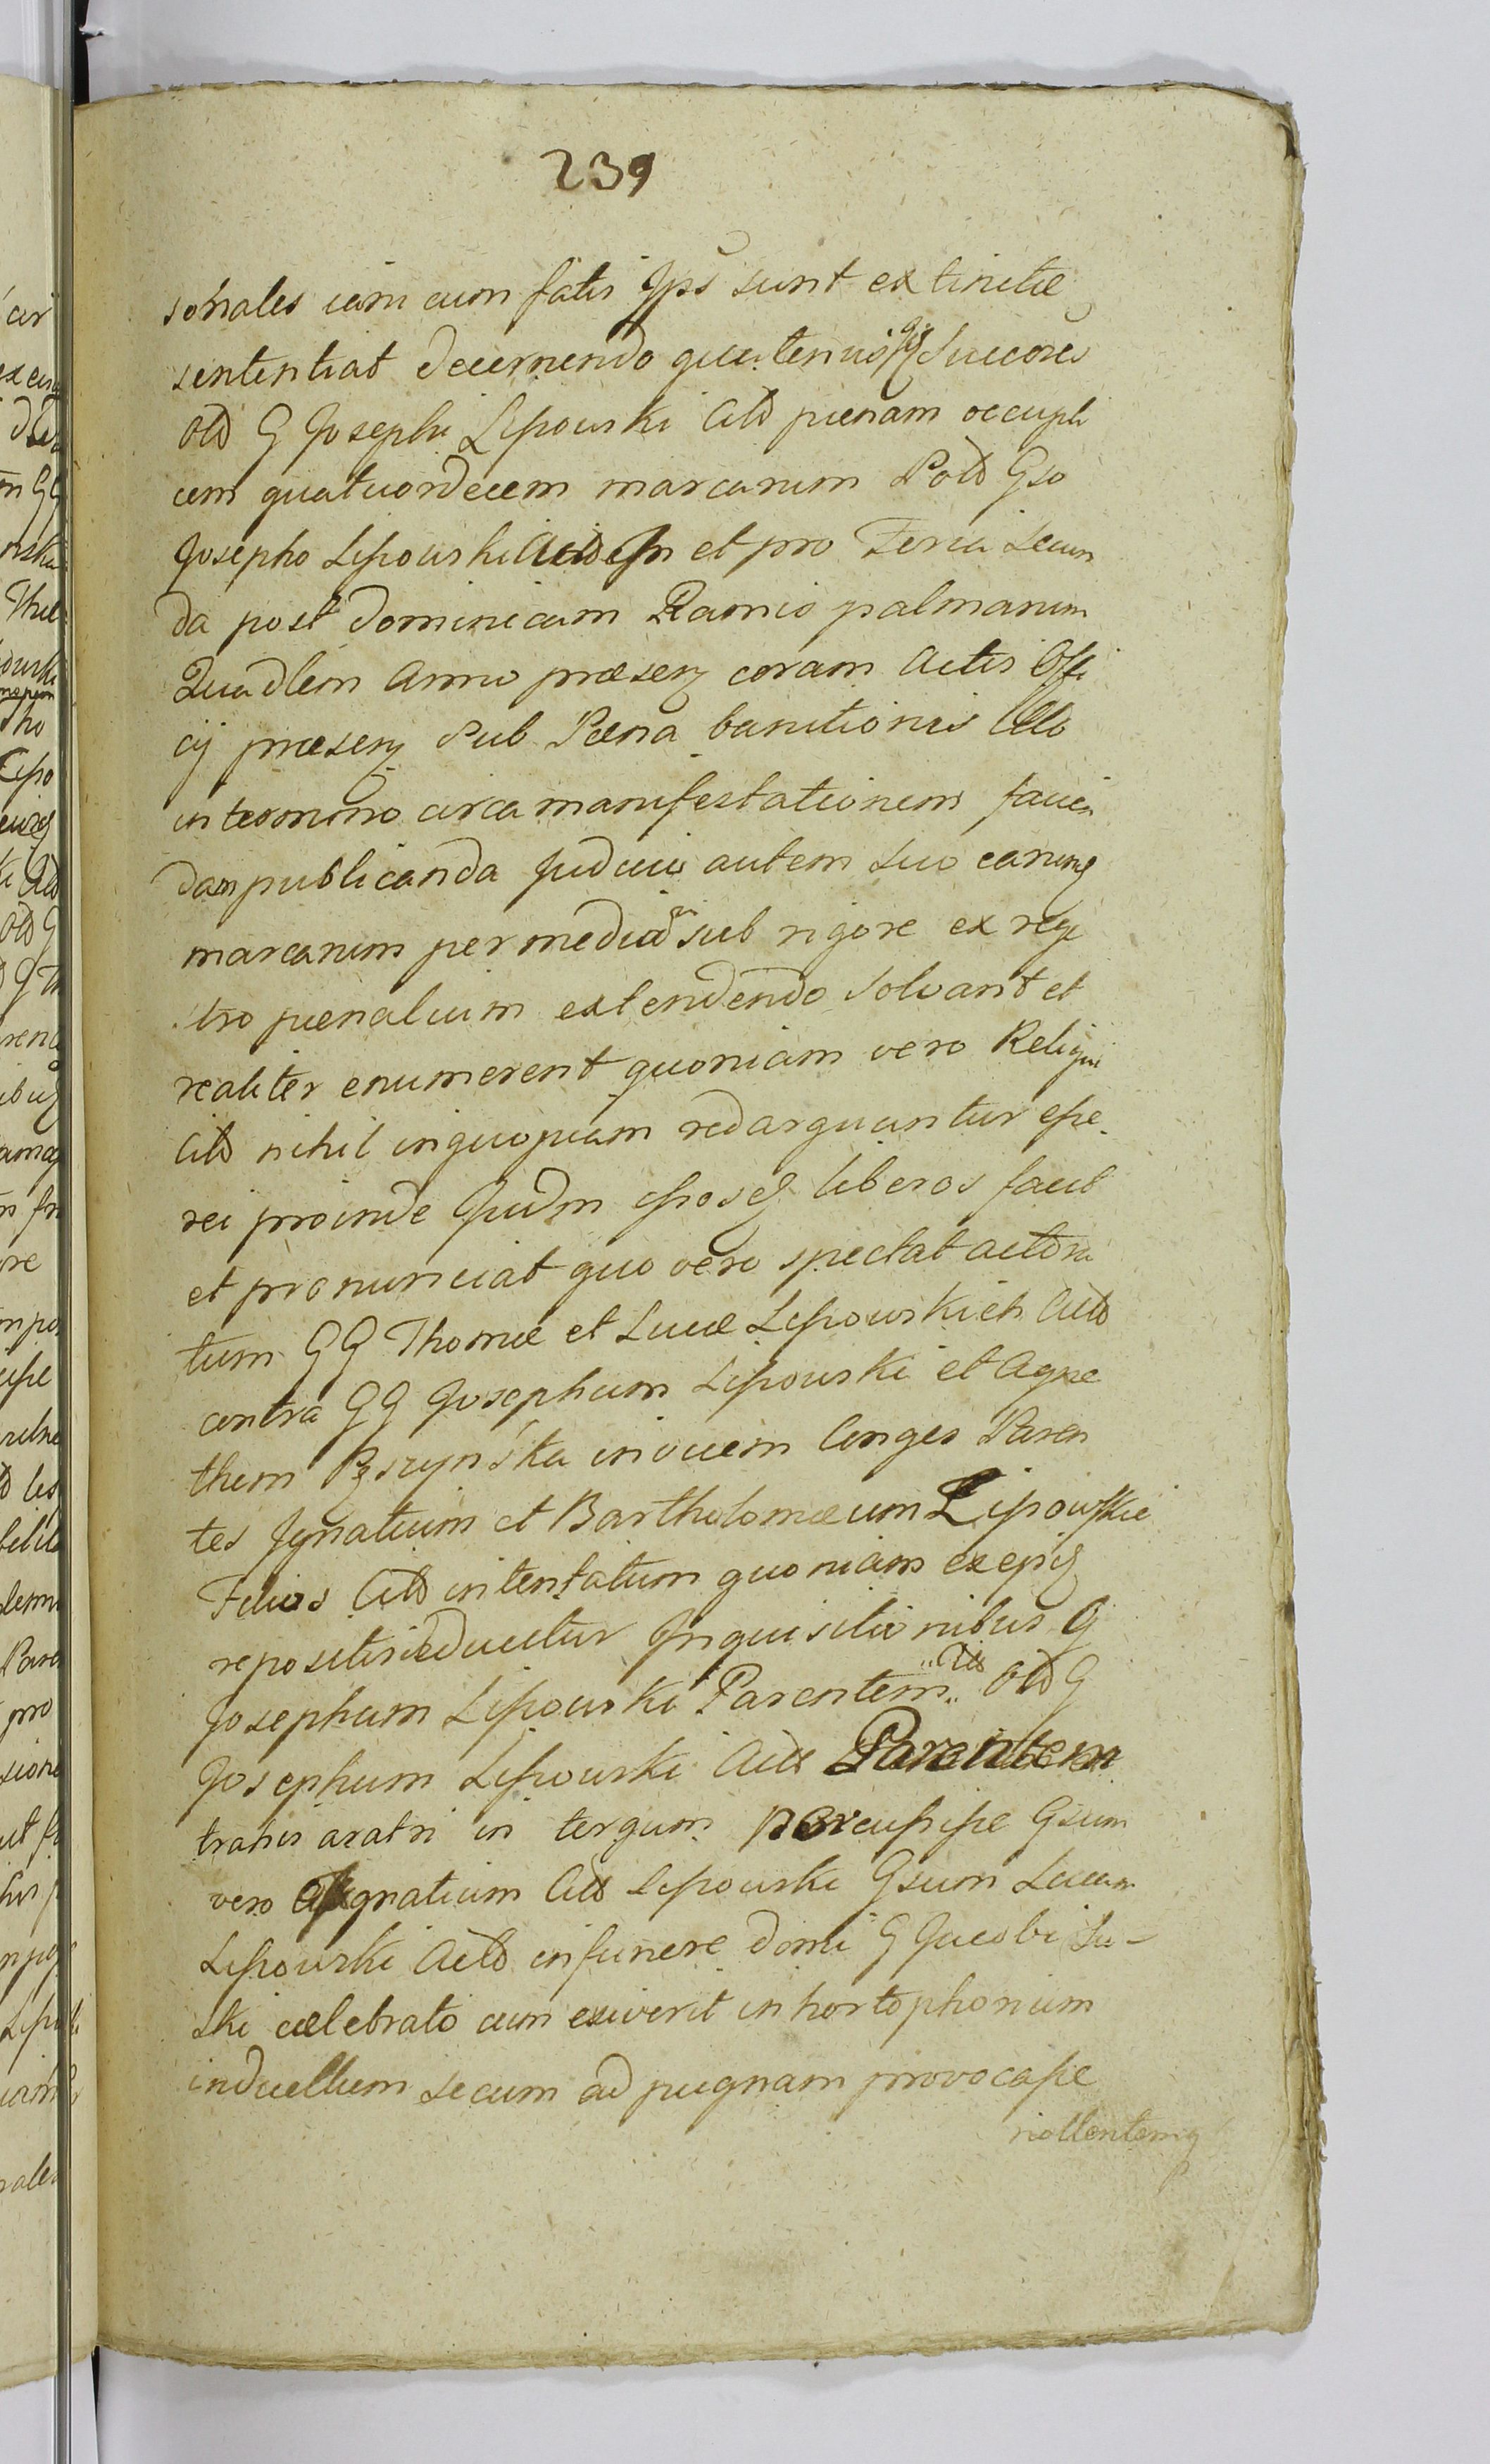 239
sonales iam cum fatis Ips sunt extinctæ
sententiat decernendo quatenus Succores
old G Josephi Lipowski Citd pœnam occupli
cem quatuordecem marcarum Patd Gso
Josepho Lipowski Actd In et pro Feria Secun
da post Dominicam Ramis palmarum
Quadlem Anno præsenz coram Actis Offi
cij præsenz sub Pœna banitionis Cito
in termino circa manifestationem facien
dam publicanda Judicio autem suo earumq
marcarum per mediã sub rigore ex regi
stro pœnalium extendendo solvant et
realiter enumerent quoniam vero Reliqui
Citd nihil inquopiam redarguuntur esse
rei proinde Judm ipsosq liberos facit
et pronunciat quo vero spectat actora
tum GG Thomæ et Lucæ Lipowskich Actd
contra GG Josephum Lipowski et Agne
them Rzszyńska invicem Conges Paren
tes Ignatium et Bartholomæum Lipowskie
Filios Citd intentatum quoniam ex epis
repositis educitur Inquisitionibus G
Josephum Lipowski Parentem Citd old G
Josephum Lipowski Actd Parentem
trahis aratri in tergum percussisse Gsum
vero Ignatium Citd Lipowski Gsum Lucam
Lipowski Actd in funere domi G Jacobi Su-
ski cælebrato cum exiverit in hortophonium
in duellum secum ad pugnam provocasse
nollentemq
ar
Thu
sho
Lipo
old G
G Th
ibus
re
Pare
pro
sione
Lipo